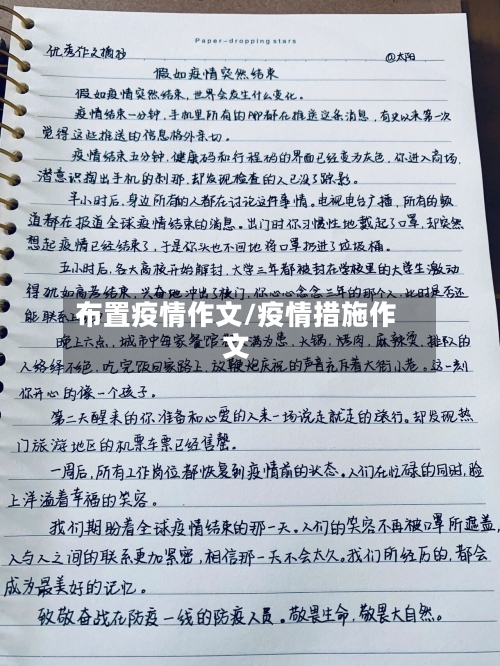 Paper-dropping stars
优秀作文摘抄 @太阳
假如疫情突然结束
假如疫情突然结束，世界会发生什么变化。
疫情结束一分钟，手机里所有的APP都在推送这条消息，有史以来第一次
觉得这些推送的信息格外亲切。
疫情结束五分钟，健康码和行程码的界面已经变为灰色，你进入商场，
潜意识掏出手机的刹那，却发现检查的人已没了踪影。
半小时后，身边所有的人都在讨论这件事情。电视电台广播，所有的频
道都在报道全球疫情结束的消息。出门时你习惯性地戴起了口罩，却突然
想起疫情已经结束了，于是你头也不回地将口罩扔进了垃圾桶。
五小时后，各大高校开始解封，大学三年都被封在学校里的大学生激动
得犹如高考结束，兴奋地冲出了校门，你心心念念三年的那个人，此时是否还
能联系上
布置疫情作文/疫情措施作
文
晚上六点，城市中每家餐馆 满为患，火锅，烤肉，麻辣烫，排队的
人络绎不绝，吃完饭回家路上，放鞭炮庆祝的声音充斥着大街小巷。这一刻
你开心的像一个孩子。
第二天醒来的你准备和心爱的人来一场说走就走的旅行。却发现热
门旅游地区的机票车票已经售罄。
一周后，所有工作岗位都恢复到疫情前的状态。人们在忙碌的同时，脸
上洋溢着幸福的笑容。
我们期盼着全球疫情结束的那一天。人们的笑容不再被口罩所遮盖，
人与人之间的联系更加紧密，相信那一天不会太久。我们所经历的，都会
成为最美好的记忆。
致敬奋战在防疫一线的防疫人员。敬畏生命，敬畏大自然。